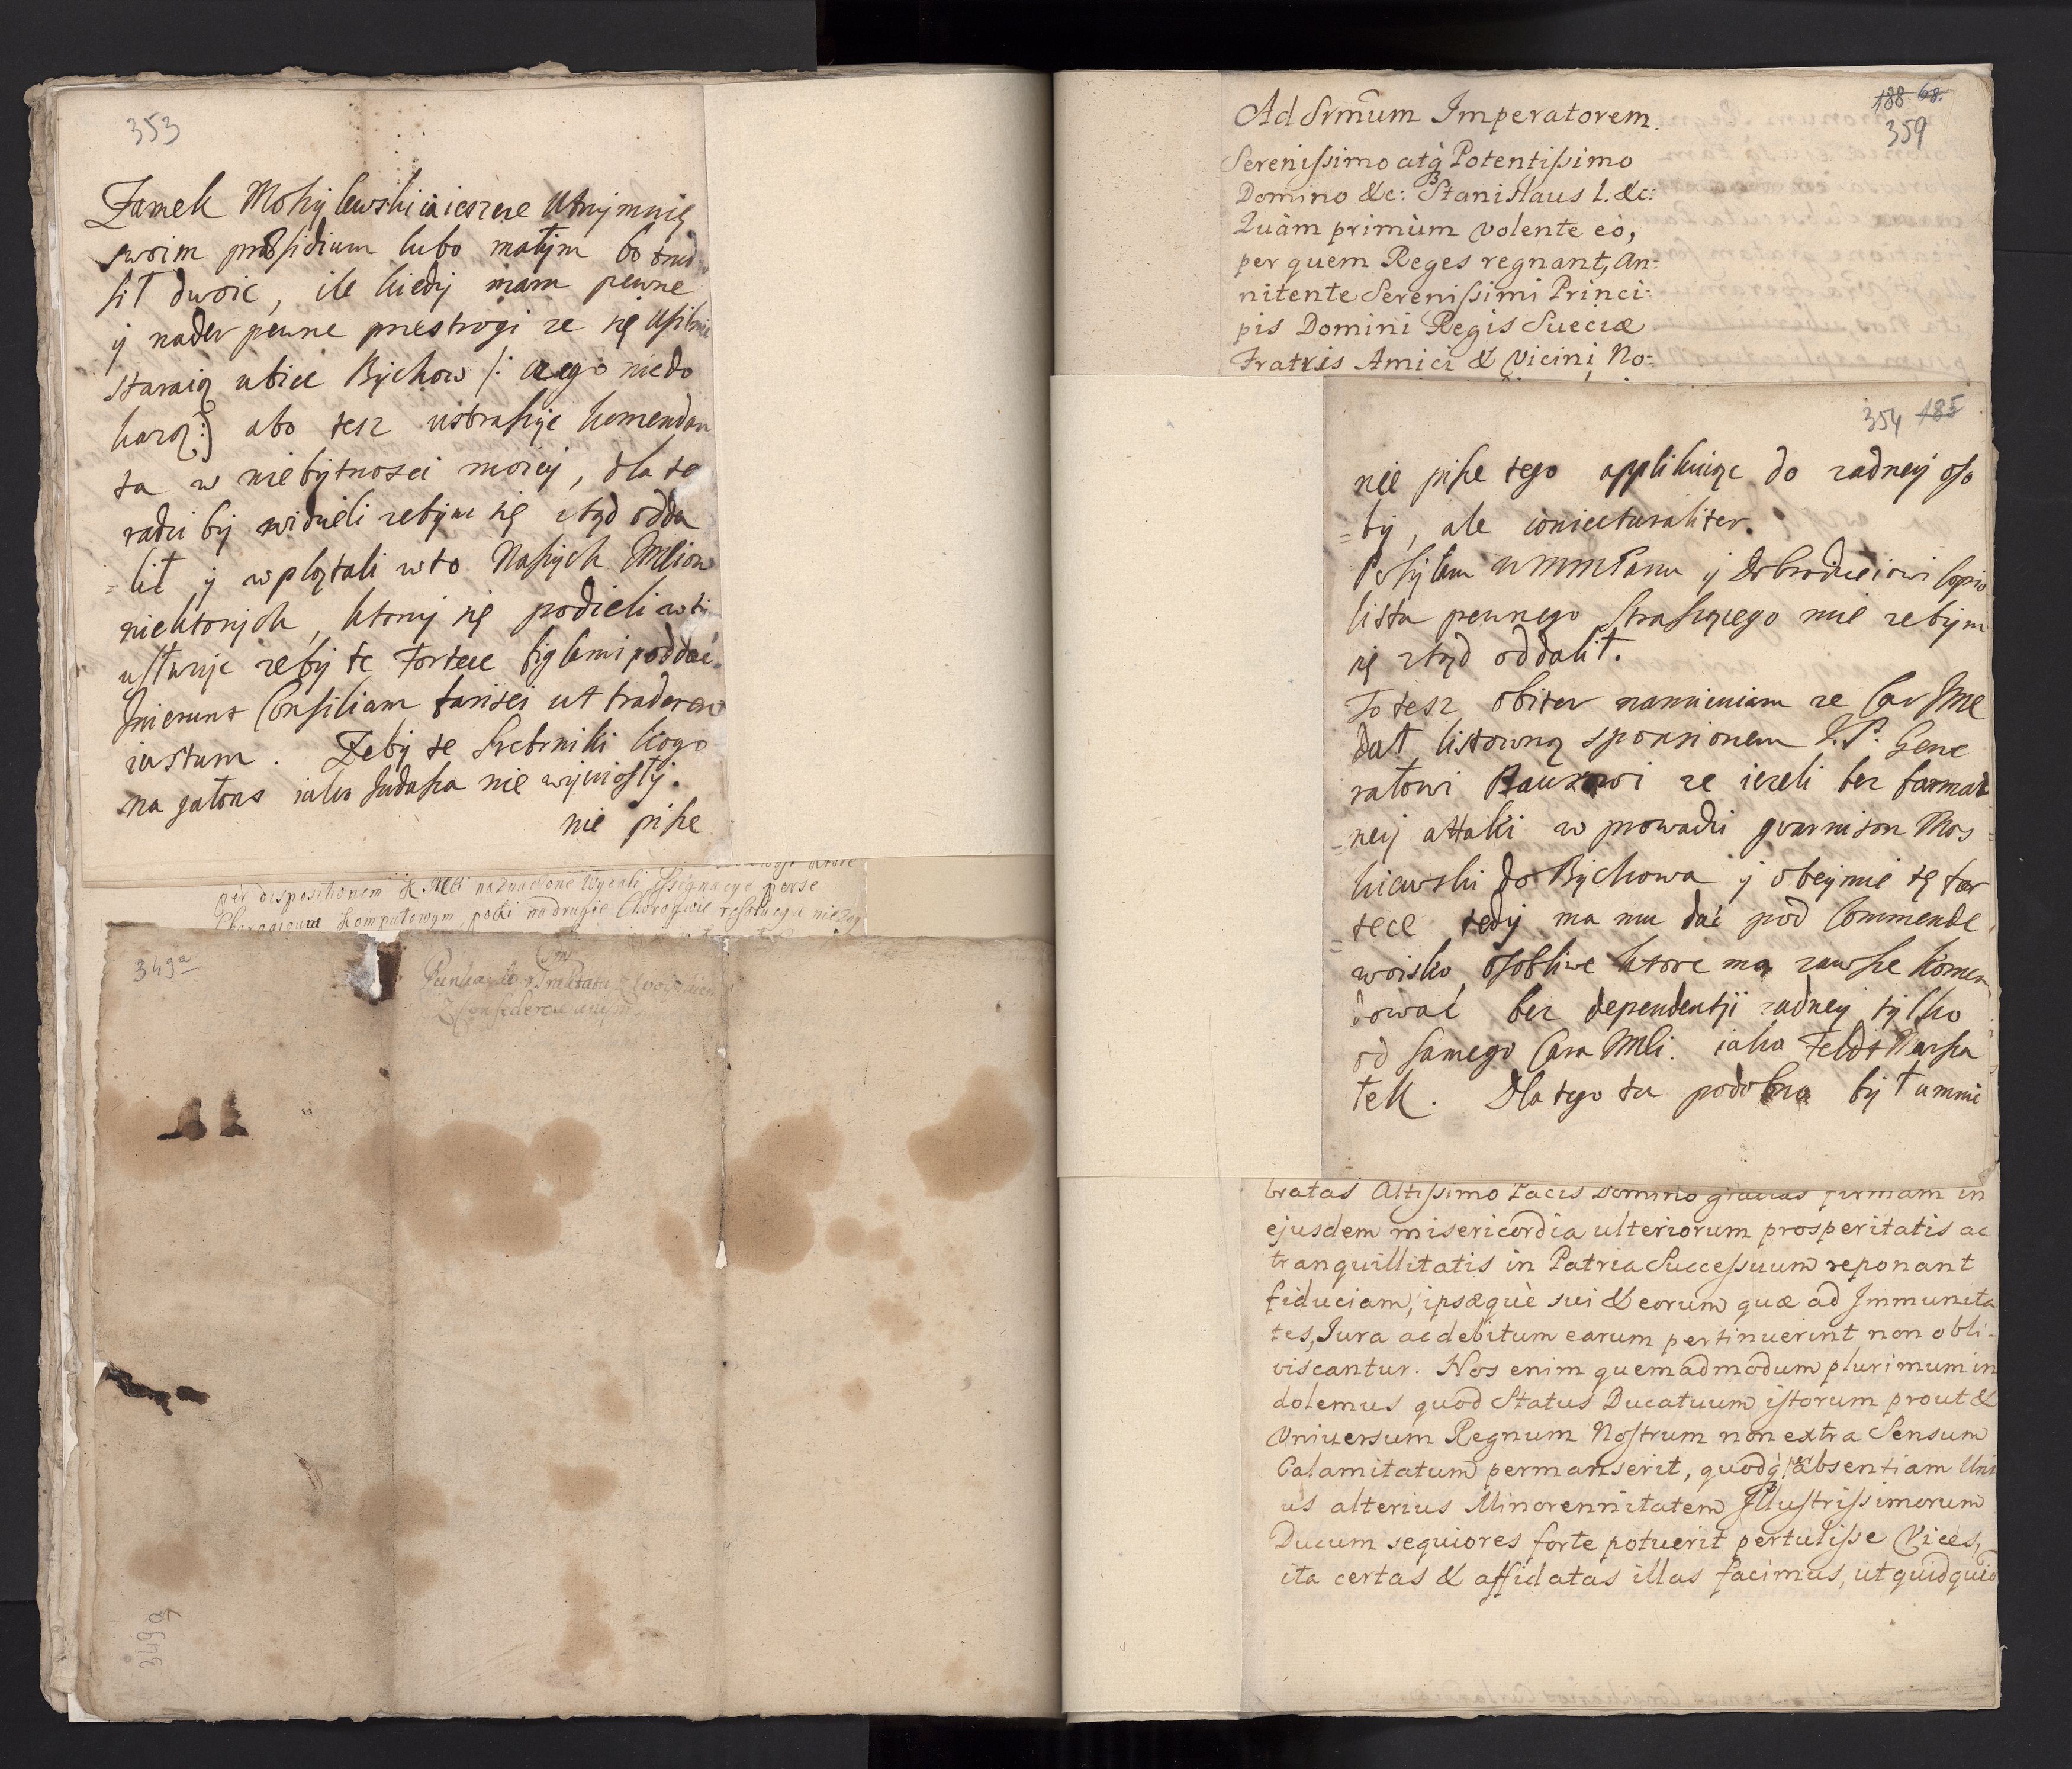 353
Zamek Mohylewski ia ieszcze Utrzymuię
swoim præsidium lubo małym bo
sił dwoic, ile kiedy mam pewne
y nader pewne przestrogi ze się Usilnie
staraią ubiec Bychow /: czego niedo
każą :) abo tesz ustraszyc komendan
ta w niebytnosci moiey, dla te
radzi by widzieli zebym się ztąd odda
=lił y wplątali wto Naszych Mlion
niektorych, ktorzy się podieli w ty
usłudze zeby te Fortece figlami poddać.
Inierunt Consilium farisei ut traderent
iustum. Zeby te Srebrniki kogo
na gałons iako Judasza nie wyniosły.
nie pisze
per dispositionem K Mći naznaczone Wydali Assignacye perse
Choragwiom Komputowym, poki na drugie Chorągwie
349a
Punkta do Traktatu
Z Confederacyami
349a
188. 68.
359
Ad Srm̃um Imperatorem.
Serenissimo atq̀ Potentissimo
Domino &c: Stanislaus I. &c:
Quàm primùm volente eò,
per quem Reges regnant, An=
nitente Serenissimi Princi=
pis Domini Regis Sueciæ
Fratris Amici & Vicini No=
354 185
nie pisze tego applikuiąc do zadney oso
=by, ale coniecturaliter.
Posyłam WMMPanu y Dobrodzieiowi Copią
listu pewnego Straszącego mie zebym
się ztąd oddalił.
To tesz obiter namieniam ze Car JMC
dał listowną sponsionem J.P. Gene
rałowi Baurowi ze iezeli bez formal
=ney attaki w prowadzi gvarnison Mos=
kiewski do Bychowa y obeymie tę for
=tece tedy ma mu dać pod Commende
woisko osobliwe ktore ma zawsze komen
dować bez dependentji zadney tylko
od samego Cara JMći. iako Feldt Marsza
łek. Dla tego tu podobno by tu mnie
bratas Altissimo Pacis Domino gratias firmam in
ejusdem misericordia ulteriorum prosperitatis ac
tranquillitatis in Patria Successuum reponant
fiduciam, ipsæquè sui & eorum quæ ad Immunita
tes, Jura ac debitum earum pertinuerint non obli-
viscantur. Nos enim quemadmodum plurimum in
dolemus quod Status Ducatuum istorum prout &
Universum Regnum Nostrum non extra Sensum
Calamitatum permanserit, quodq̀ per absentiam Uni
us alterius Minorennitatem Illustrissimorum
Ducum sequiores forte potuerit pertulisse Vices,
ita certas & affidatas illas facimus, ut quidquid